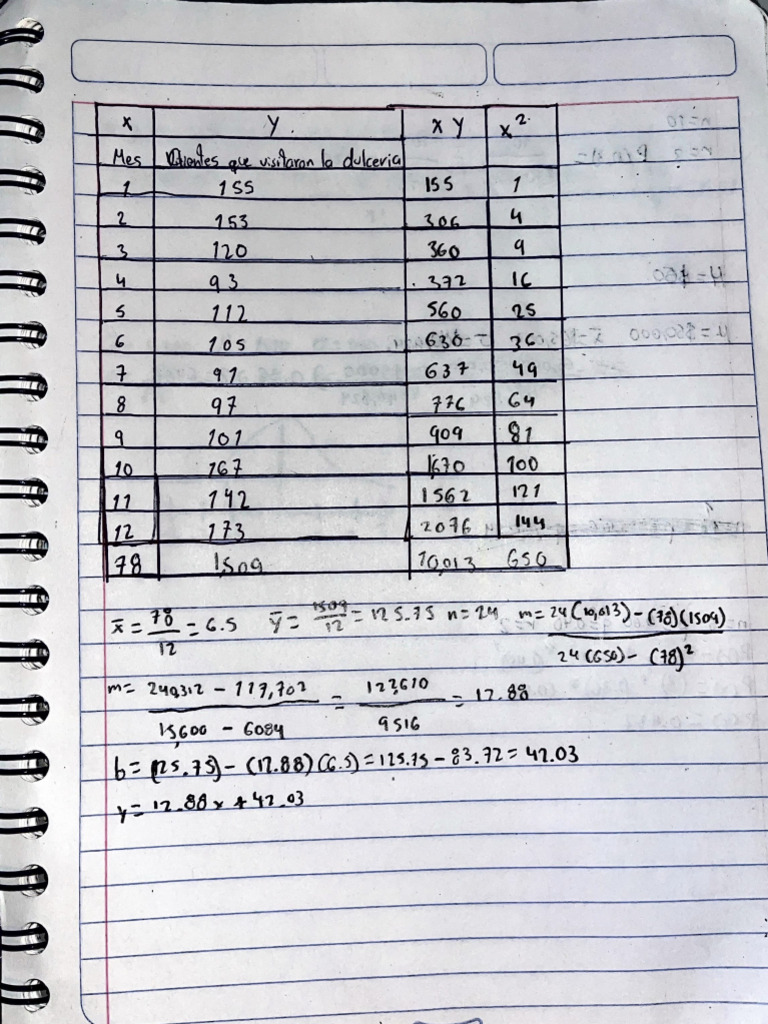 x Y. XY x²
Mes Clientes que visitaron la dulceria
1 155 155 1
2 153 306 4
3 120 360 9
4 93 372 16
5 112 560 25
6 105 630 36
7 91 637 49
8 97 776 64
9 101 909 81
10 167 1670 100
11 142 1562 121
12 173 2076 144
78 1,509 10,013 650
x̄ = 78/12 = 6.5 ȳ = 1509/12 = 125.75 n = 24 m = 24(10,013) - (78)(1509) / 24(650) - (78)²
m = 240,312 - 117,702 / 15,600 - 6084 = 122,610 / 9516 = 12.88
b = (125.75) - (12.88)(6.5) = 125.75 - 83.72 = 42.03
y = 12.88x + 42.03